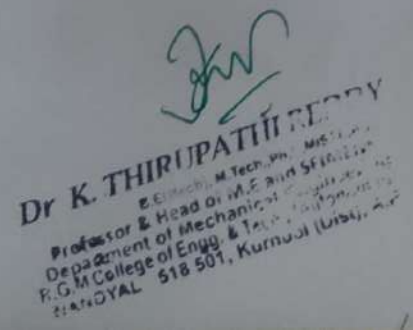 Dr K. THIRUPATHI REDDY
B.E(Mech), M.Tech, Ph.D, MISTE
Professor & Head of M.E and
Department of Mechanical
R.G.M College of Engg. & Tech.,
NANDYAL 518 501, Kurnool (Dist), A.P